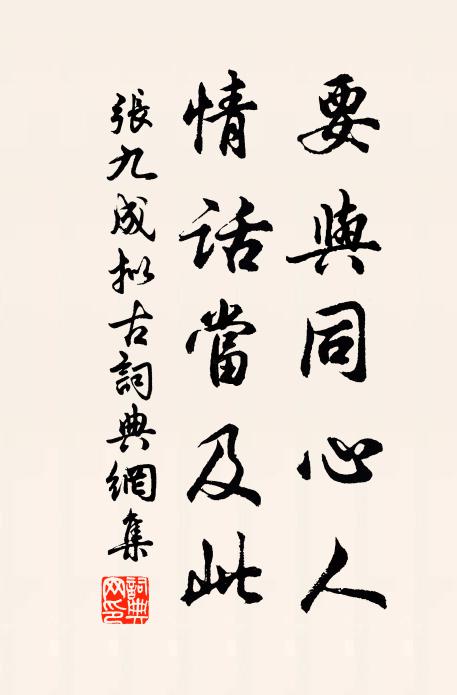 要與同心人
情話當及此
張九成拟古詞典網集
詞典網印